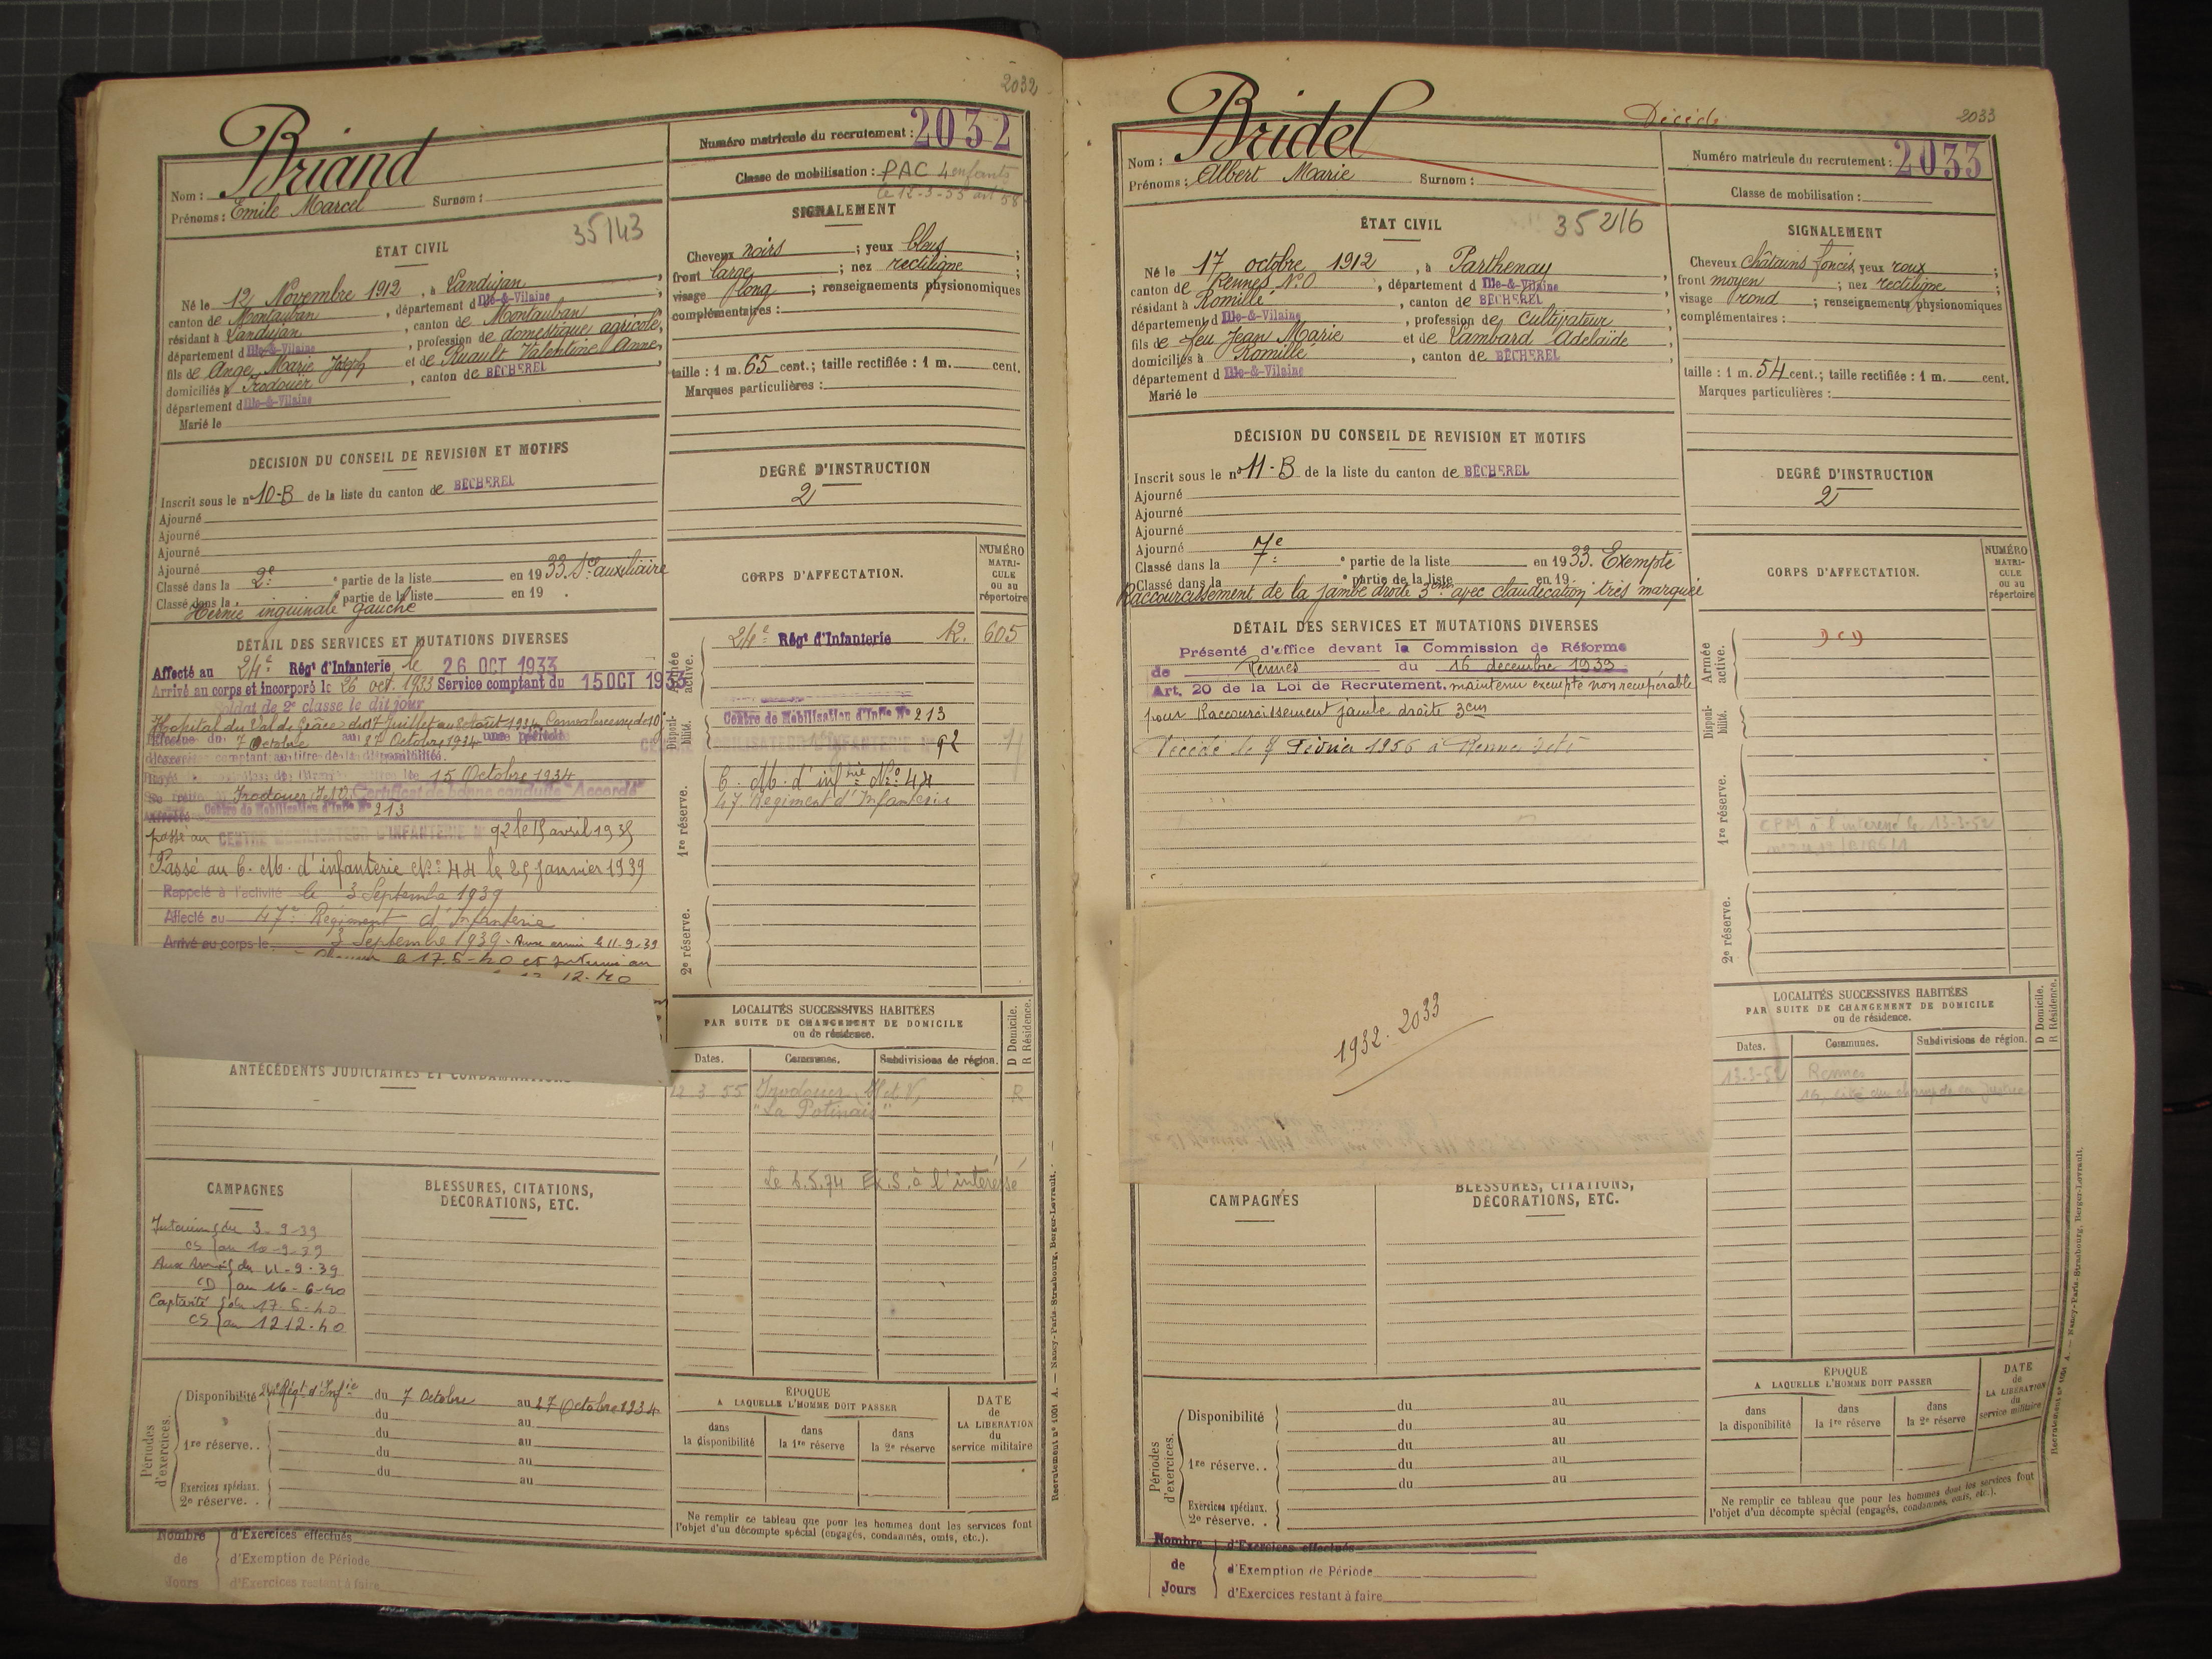 2032
Briand
Nom :
Prénoms : Emile Marcel Surnom :
Numéro matricule du recrutement : 2032
Classe de mobilisation : PAC 4 enfants
le 12-3-55 art 58
35143
ÉTAT CIVIL
Né le 12 Novembre 1912, à Landujan
canton de Montauban, département d Ille-&-Vilaine
résidant à Landujan, canton de Montauban
département d Ille-&-Vilaine, profession de domestique agricole,
fils de Ange Marie Joseph et de Ruault Valentine Anne
domiciliés à Irodouër, canton de BÉCHEREL
département d Ille-&-Vilaine
Marié le
SIGNALEMENT
Cheveux noirs ; yeux bleus ;
front large ; nez rectiligne ;
visage long ; renseignements physionomiques
complémentaires :
taille : 1 m. 65 cent.; taille rectifiée : 1 m. cent.
Marques particulières :
DÉCISION DU CONSEIL DE REVISION ET MOTIFS
Inscrit sous le n° 10-B de la liste du canton de BÉCHEREL
Ajourné
Ajourné
Ajourné
Ajourné
Classé dans la 2e partie de la liste en 1933. Sce auxiliaire
Classé dans la partie de la liste en 19 .
Hernie inguinale gauche
DEGRÉ D'INSTRUCTION
2
DÉTAIL DES SERVICES ET MUTATIONS DIVERSES
Affecté au 24e Régt d'Infanterie le 26 OCT 1933
Arrivé au corps et incorporé le 26 oct. 1933 Service comptant du 15 OCT 1933
Soldat de 2e classe le dit jour
Hopital du Val de Grâce du 17 Juillet au août 1934 Convalescence de 10 j
du 7 Octobre au 27 Octobre 1934 une période
d'exercices comptant au titre de la disponibilité.
15 Octobre 1934
Se retire à Irodouer (I.&V.) Certificat de bonne conduite "Accordé"
Affecté Centre de Mobilisation d'Infie N° 213
passé au CENTRE MOBILISATEUR D'INFANTERIE N° 92 le 15 avril 1935
Passé au C. M. d'infanterie N° 44 le 25 Janvier 1939
Rappelé à l'activité le 3 Septembre 1939
Affecté au 47e Régiment d'Infanterie
Arrivé au corps le 3 Septembre 1939. Aux armées le 11-9-39
12-40
CORPS D'AFFECTATION.
NUMÉRO MATRICULE ou au répertoire
Armée active.
24e Régt d'Infanterie 12. 605
Disponibilité.
Centre de Mobilisation d'Infie N° 213
CENTRE MOBILISATEUR D'INFANTERIE N° 92
1re réserve.
C. M. d'infrie N° 44
47e Régiment d'Infanterie
2e réserve.
LOCALITÉS SUCCESSIVES HABITÉES
PAR SUITE DE CHANGEMENT DE DOMICILE
ou de résidence.
D Domicile.
R Résidence.
Dates. Communes. Subdivisions de région.
12-3-55 Irodouer I et V, R
"La Potinais"
Le 6.5.74 Ex.S. à l'intéressé
ANTÉCÉDENTS JUDICIAIRES ET CONDAMNATIONS
CAMPAGNES
Intérieur du 3-9-39
CS au 10-9-39
Aux Armées du 11-9-39
CD au 16-6-40
Captivité du 17-6-40
CS au 12 12-40
BLESSURES, CITATIONS,
DÉCORATIONS, ETC.
Périodes d'exercices.
Disponibilité 24e Régt d'Infie du 7 Octobre au 27 Octobre 1934
du au
1re réserve. . du au
du au
du au
Exercices spéciaux.
2e réserve. .
ÉPOQUE
A LAQUELLE L'HOMME DOIT PASSER
dans la disponibilité
dans la 1re réserve
dans la 2e réserve
DATE de LA LIBÉRATION du service militaire
Ne remplir ce tableau que pour les hommes dont les services font
l'objet d'un décompte spécial (engagés, condamnés, omis, etc.).
Nombre de Jours
d'Exercices effectués
d'Exemption de Période
d'Exercices restant à faire
Recrutement n° 1001 A. — Nancy-Paris-Strasbourg, Berger-Levrault.
Décédé
2033
Bridel
Nom :
Prénoms : Albert Marie Surnom :
Numéro matricule du recrutement : 2033
Classe de mobilisation :
35216
ÉTAT CIVIL
Né le 17 octobre 1912, à Parthenay
canton de Rennes N.O, département d Ille-&-Vilaine
résidant à Romillé, canton de BÉCHEREL
département d Ille-&-Vilaine, profession de cultivateur
fils de feu Jean Marie et de Lambard Adelaïde
domiciliés à Romillé, canton de BÉCHEREL
département d Ille-&-Vilaine
Marié le
SIGNALEMENT
Cheveux châtains foncés, yeux roux ;
front moyen ; nez rectiligne ;
visage rond ; renseignements physionomiques
complémentaires :
taille : 1 m. 54 cent.; taille rectifiée : 1 m. cent.
Marques particulières :
DÉCISION DU CONSEIL DE REVISION ET MOTIFS
Inscrit sous le n° 11-B de la liste du canton de BÉCHEREL
Ajourné
Ajourné
Ajourné
Ajourné
Classé dans la 7e partie de la liste en 1933. Exempté
Classé dans la partie de la liste en 19
Raccourcissement de la jambe droite 3cm avec claudication très marquée
DEGRÉ D'INSTRUCTION
2
DÉTAIL DES SERVICES ET MUTATIONS DIVERSES
Présenté d'office devant la Commission de Réforme
de Rennes du 16 decembre 1939
Art. 20 de la Loi de Recrutement. maintenu exempté non récupérable
pour Raccourcissement jambe droite 3cm
Décédé le 7 Février 1956 à Rennes
CORPS D'AFFECTATION.
NUMÉRO MATRICULE ou au répertoire
Armée active.
Disponibilité.
1re réserve.
CPM à l'intéressé le 13-3-52
2e réserve.
1932. 2033
LOCALITÉS SUCCESSIVES HABITÉES
PAR SUITE DE CHANGEMENT DE DOMICILE
ou de résidence.
D Domicile.
R Résidence.
Dates. Communes. Subdivisions de région.
13-3-52 Rennes
16, cité du champ de la Justice
CAMPAGNES
BLESSURES, CITATIONS,
DÉCORATIONS, ETC.
Périodes d'exercices.
Disponibilité du au
du au
1re réserve. . du au
du au
du au
Exercices spéciaux.
2e réserve. .
ÉPOQUE
A LAQUELLE L'HOMME DOIT PASSER
dans la disponibilité
dans la 1re réserve
dans la 2e réserve
DATE de LA LIBÉRATION du service militaire
Ne remplir ce tableau que pour les hommes dont les services font
l'objet d'un décompte spécial (engagés, condamnés, omis, etc.).
Nombre de Jours
d'Exercices effectués
d'Exemption de Période
d'Exercices restant à faire
Recrutement n° 1001 A. — Nancy-Paris-Strasbourg, Berger-Levrault.